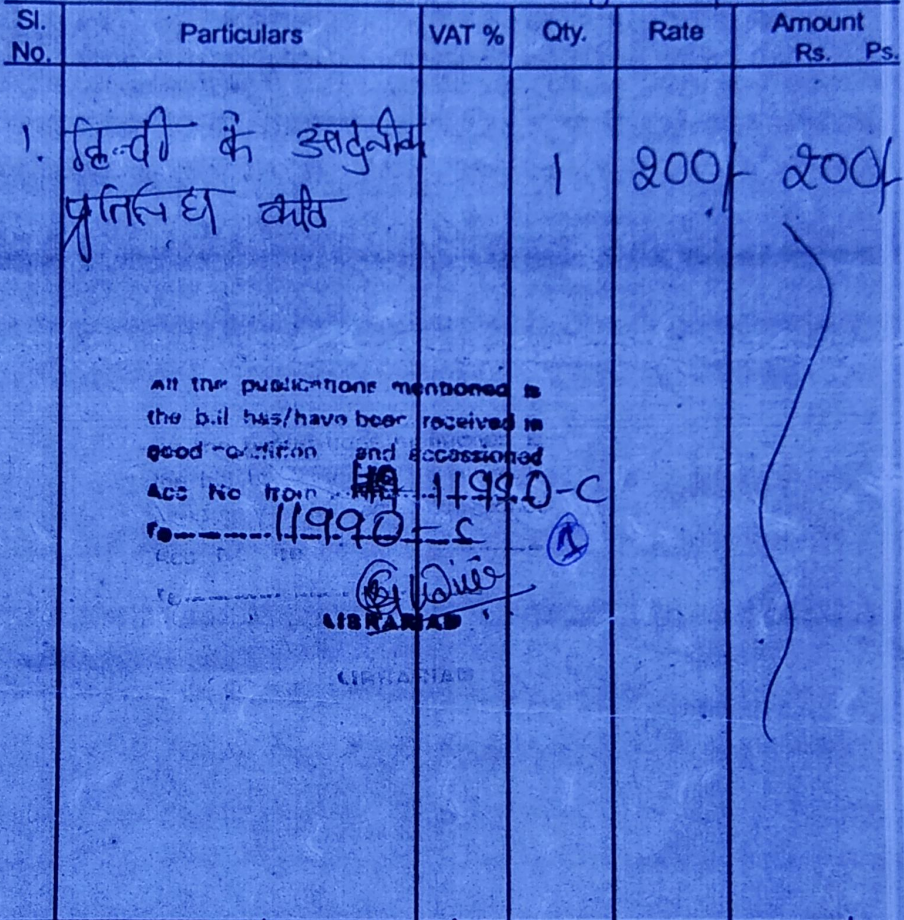 Sl. No. Particulars VAT % Qty. Rate Amount Rs. Ps.
1. हिन्दी के आधुनीक 1 200/- 200/-
प्रतिनिधि कवि
All the publications mentioned is
the bill has/have been received in
good condition and accessioned
Acc No from 11990-C
To 11990-C
1
LIBRARIAN
LIBRARIAN